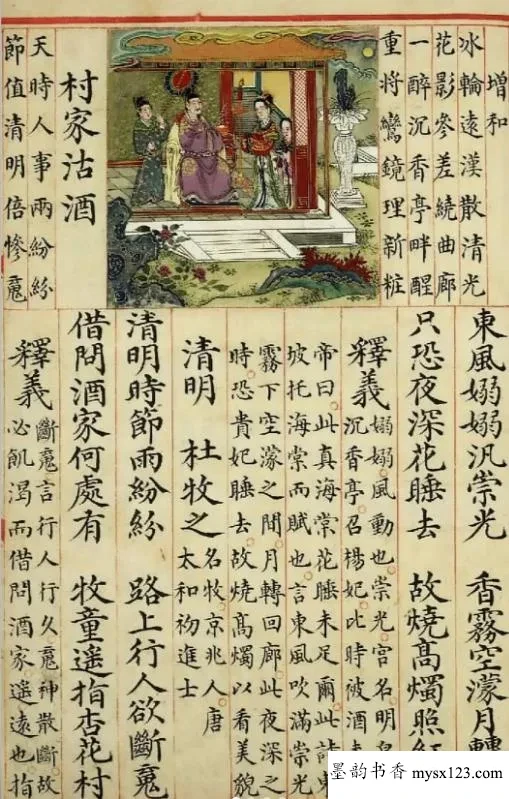 增和
冰輪遠漢散清光
花影參差繞曲廊
一醉沉香亭畔醒
重將鸞鏡理新粧
村家沽酒
天時人事兩紛紛
節值清明倍慘䰟
東風嫋嫋汎崇光 香霧空濛月轉
只恐夜深花睡去 故燒高燭照紅
釋義 嫋嫋風動也崇光宮名明
沉香亭召楊妃此時被酒
帝曰此真海棠花睡未足爾此詩
坡托海棠而賦也言東風吹滿崇
霧下空濛之間月轉回廊此夜深之
時恐貴妃睡去故燒高燭以看美貌
清明 杜牧之 名牧京兆人唐
太和初進士
清明時節雨紛紛 路上行人欲斷䰟
借問酒家何處有 牧童遙指杏花村
釋義 斷䰟言行人行久䰟神散斷故
必飢渴而借問酒家遙遠也指
墨韵书香 mysx123.com